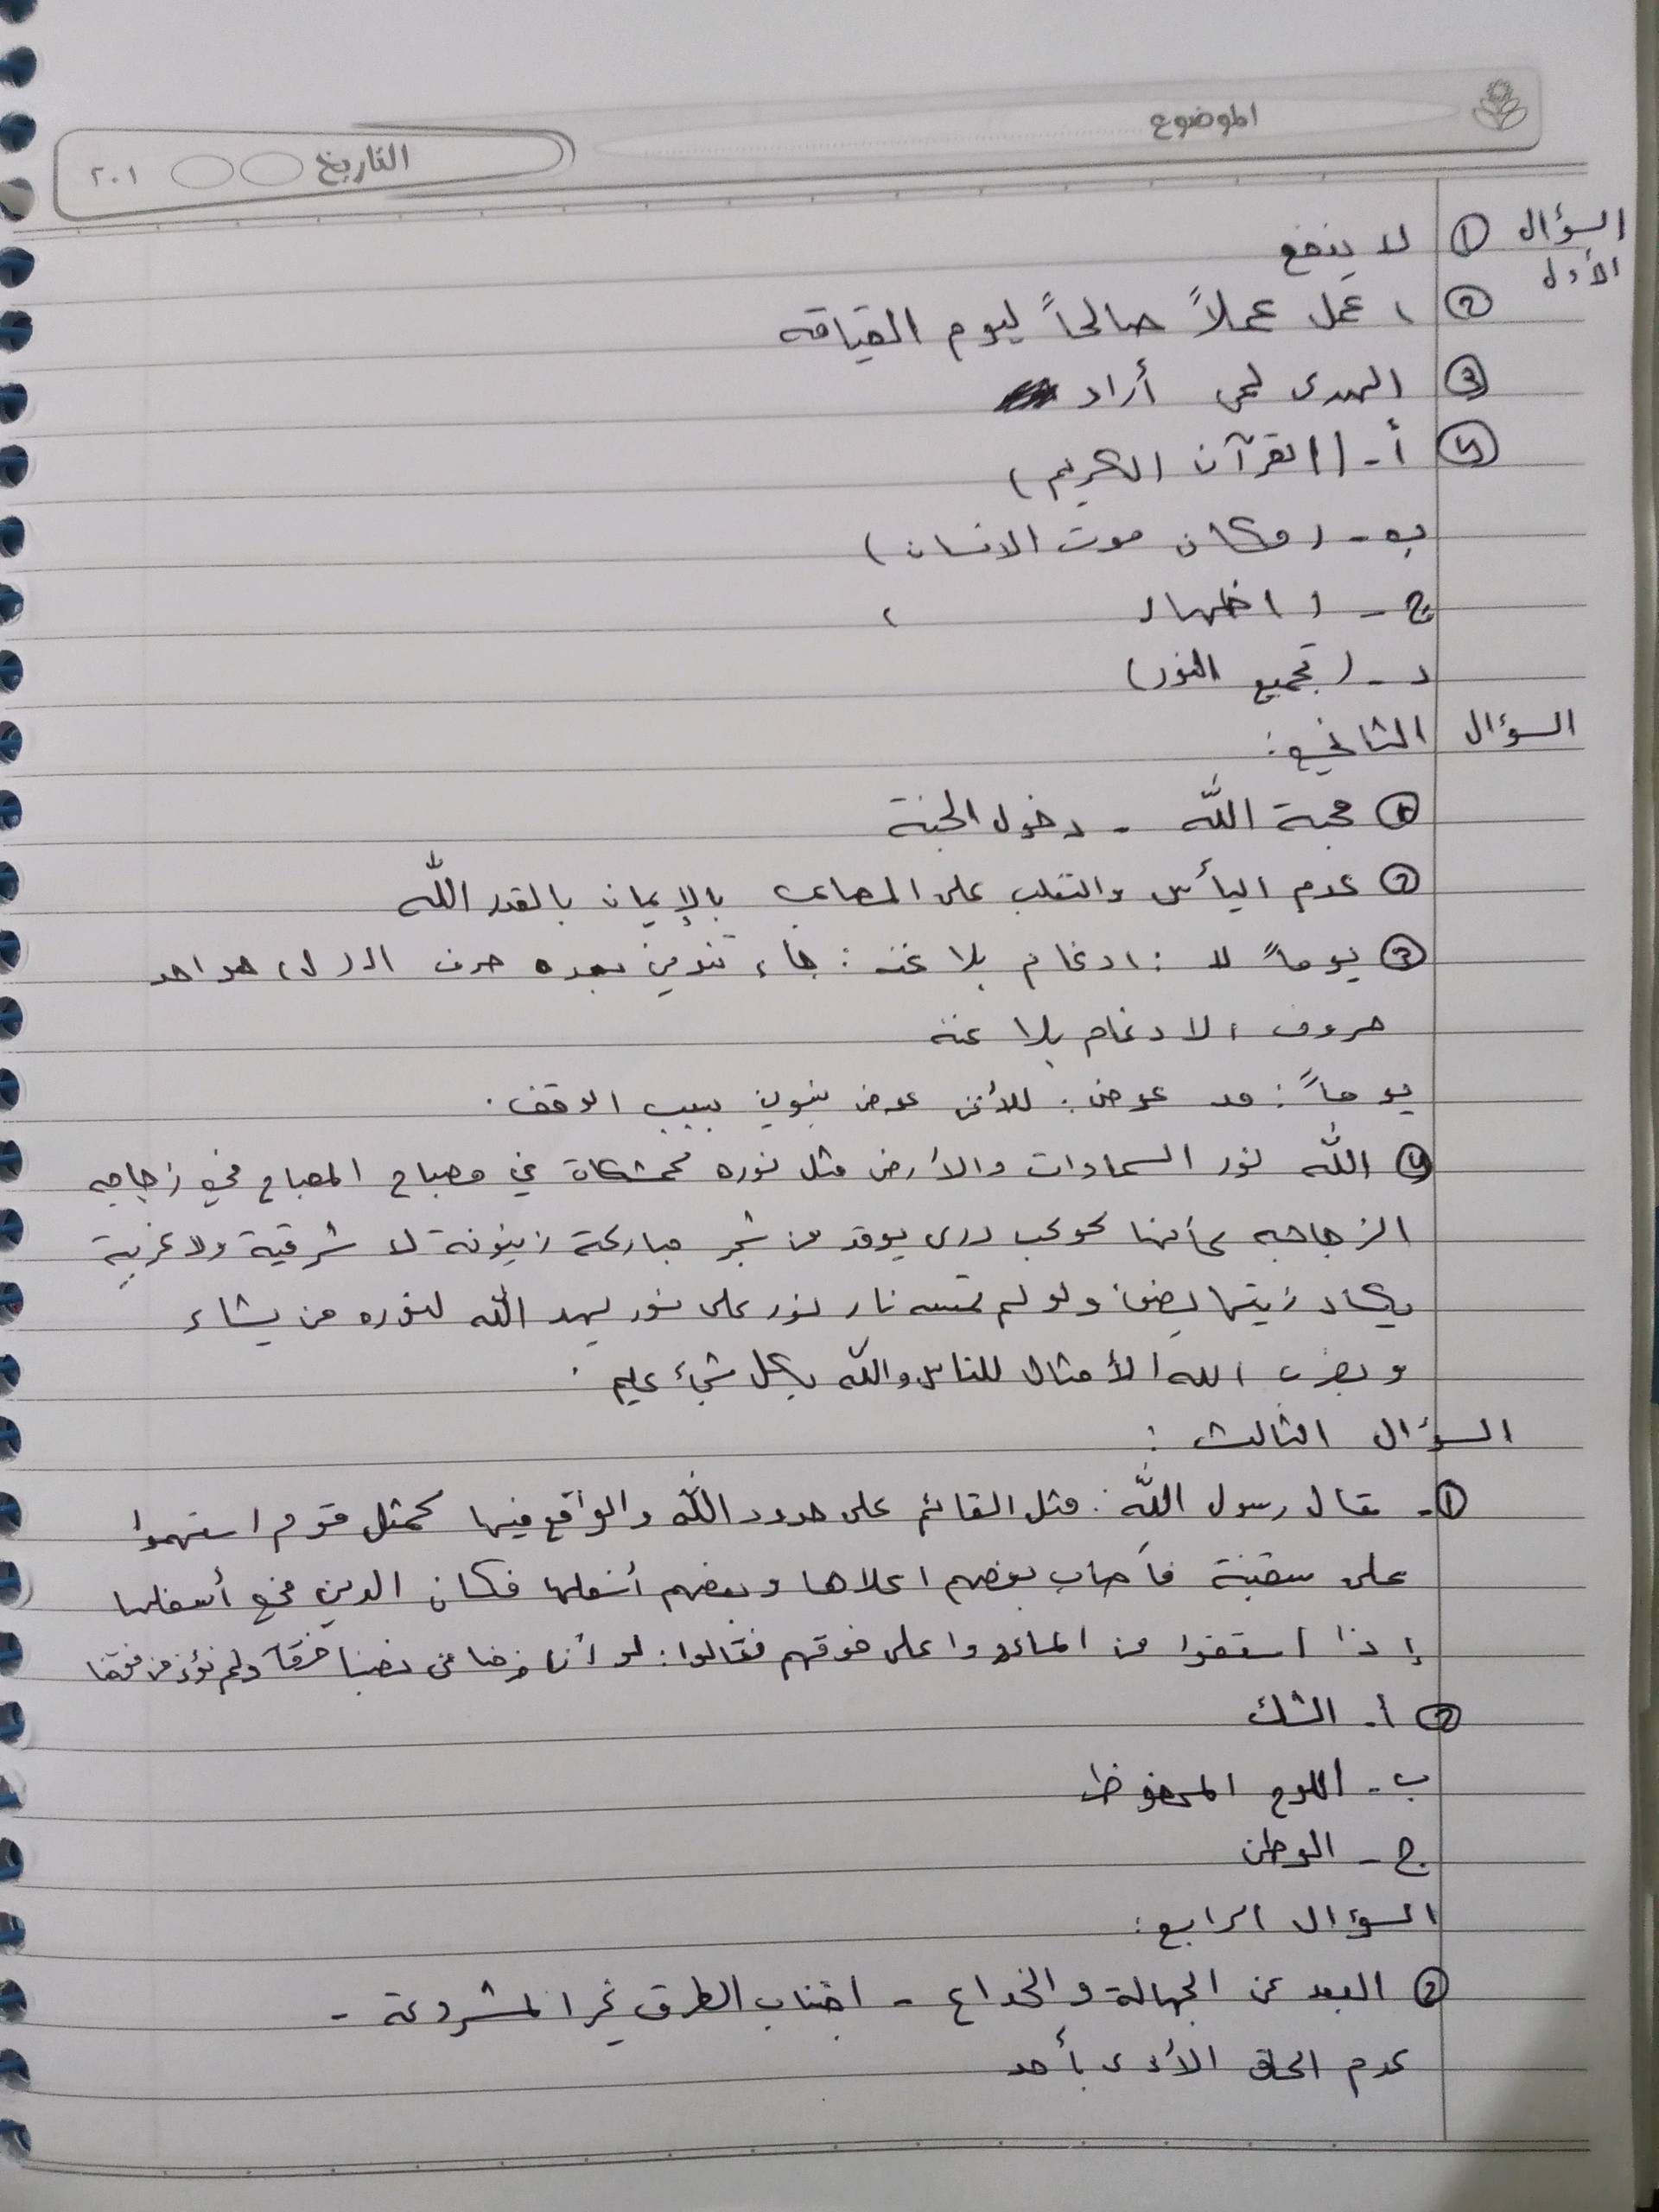 الموضوع
التاريخ ٢٠١
السؤال الأول ① لا ينفع
② اعمل عملاً صالحاً ليوم القيامه
③ الهدى لمن أراد
④ أ - (القرآن الكريم)
ب - (مكان موت الانسان)
ج - (اظهار )
د - (تجميع النور)
السؤال الثاني :
① محبة اللّه - دخول الجنة
② عدم اليأس والتغلب على المصاعب بالإيمان بالقدر اللّه
③ يوماً لا : ادغام بلا غنه : جاء تنوين بعده حرف الـ (ل) هو احد
حروف الادغام بلا غنه
يوماً : مد عوض : للأنه عوض تنوين بسبب الوقف .
④ اللّه نور السماوات والأرض مثل نوره كمشكاة في مصباح المصباح في زجاجه
الزجاجه كأنها كوكب درى يوقد من شجر مباركة زيتونة لا شرقية ولا غربية
يكاد زيتها يضئ ولو لم تمسه نار نور على نور يهد اللّه لنوره من يشاء
ويضرب الله الأمثال للناس واللّه بكل شيء عليم .
السؤال الثالث :
① - قال رسول اللّه : مثل القائم على حدود اللّه والواقع فيها كمثل قوم استهموا
على سفينة فأصاب بعضهم اعلاها وبعضهم أسفلها فكان الذين في أسفلها
إذا استقوا من الماء مروا على فوقهم فقالوا : لو أننا خرقنا في نصيبنا خرقاً ولم نؤذ من فوقنا
② أ - الشك
ب - اللوح المحفوظ
ج - الوطن
السؤال الرابع :
② البعد عن الجهالة والخداع - اجتناب الطرق غير المشروعة -
عدم الحاق الأذى بأحد